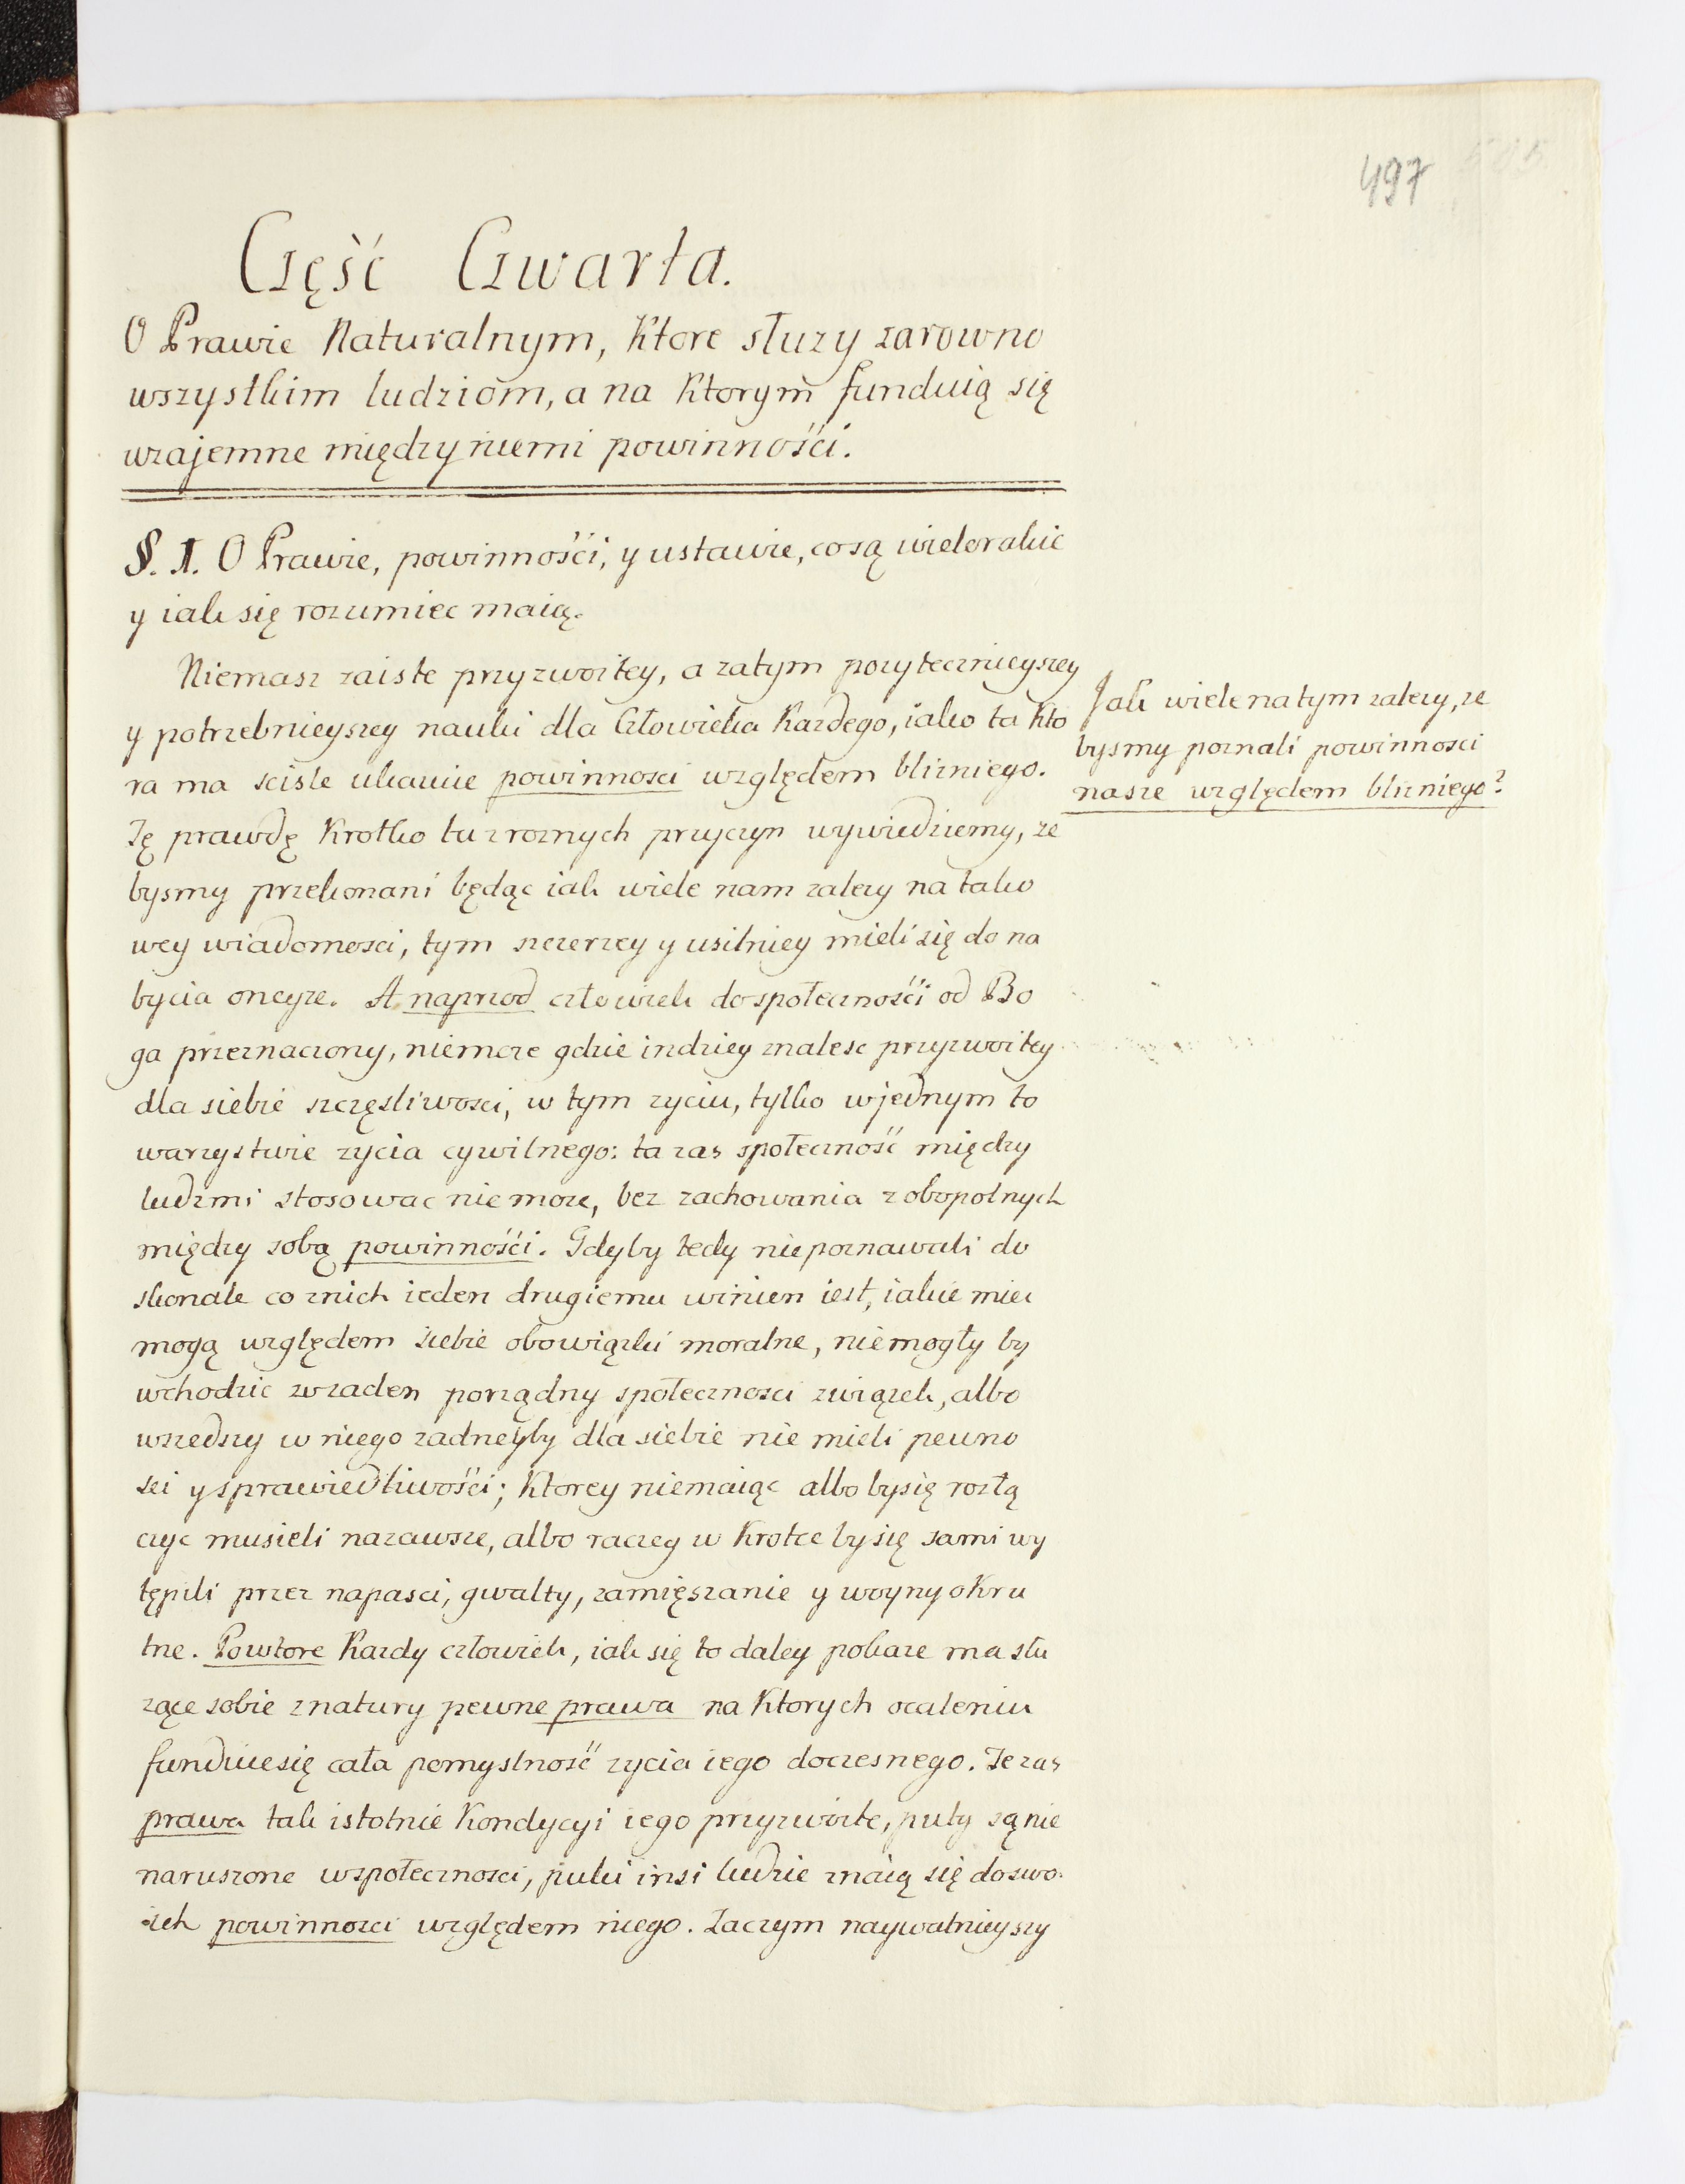 497
Część Czwarta.
O Prawie Naturalnym, Ktore słuzy zarowno
wszystkim ludziom, a na Ktorym funduią się
wzajemne między niemi powinności.
§. 1. O Prawie, powinności, y ustawie, co są wielorakie
y iak się rozumiec maią.
Niemasz zaiste przyzwoitey, a zatym pozytecznieyszey
y potrzebnieyszey nauki dla Człowieka Kazdego, iako ta Kto
ra ma sciste ukauie powinnosci względem blizniego.
Tę prawdę Krotko tu z roznych przyczyn wywiedziemy, ze
bysmy przekonani będąc iak wiele nam zalezy na tako
wey wiadomosci, tym szczerzey y usilniey mieli się do na
bycia oneyze. A naprzod człowiek do społeczności od Bo
ga przeznaczony, niemoze gdzie indziey znalesc przyzwoitey
dla siebie szczęsliwosci, w tym zyciu, tylko w jednym to
warzystwie zycia cywilnego: ta zas społeczność między
ludzmi stosowac nie moze, bez zachowania z obopolnych
między sobą powinności. Gdyby tedy nie poznawali do
skonale co znich ieden drugiemu winien iest, iakie miec
mogą względem siebie obowiązki moralne, nie mogły by
wchodzic w zaden porządny społecznosci związek, albo
wszedszy w niego zadneyby dla siebie nie mieli pewno
sci y sprawiedliwości; Ktorey niemaiąc albo by się rozłą
czyc musieli nazawsze, albo raczey w Krotce by się sami wy
tępili przez napasci, gwalty, zamięszanie y woyny oKru
tne. Powtore Kazdy człowiek, iak się to daley pokaze ma słu
zące sobie z natury pewne prawa na Ktorych ocaleniu
funduie się cała pomyslność zycia iego doczesnego. Te zas
prawa tak istotnie Kondycyi iego przyzwoite, puty są nie
naruszone w społecznosci, puki insi ludzie znaią się do swo
ich powinnosci względem niego. Zaczym naywalnieyszy
Jak wiele na tym zalezy, ze
bysmy poznali powinnosci
nasze względem blizniego?